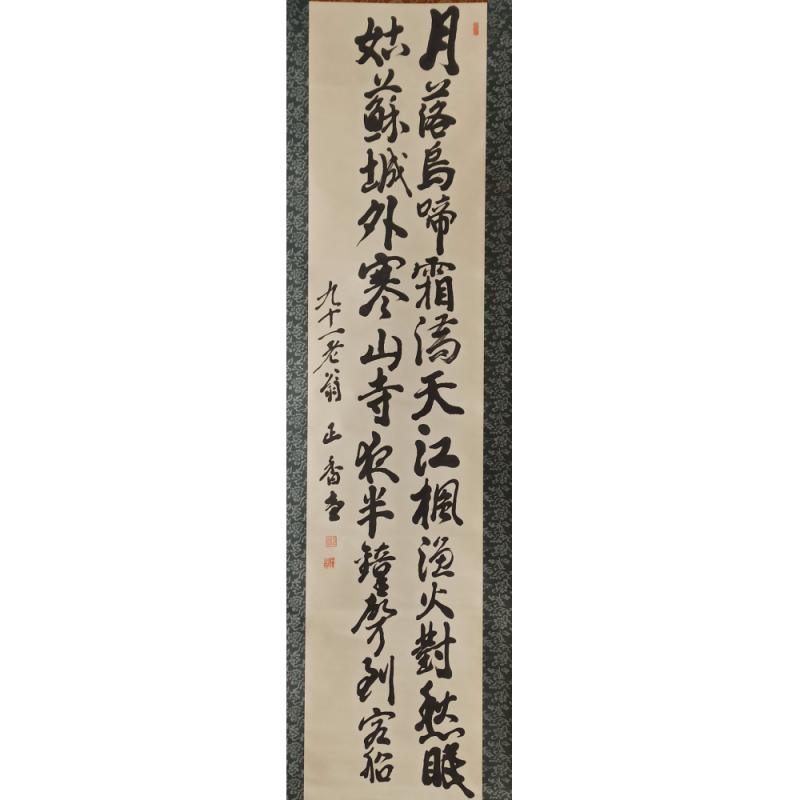 月落烏啼霜満天江楓漁火對愁眠
姑蘇城外寒山寺夜半鐘聲到客船
九十一老翁 正香書